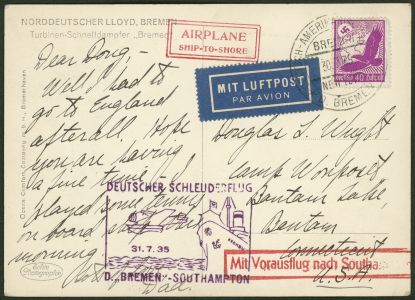 NORDDEUTSCHER LLOYD, BREMEN
Turbinen-Schnelldampfer „Bremen"
AIRPLANE
SHIP-TO-SHORE
MIT LUFTPOST
PAR AVION
40
Dear Doug –
Well had to
go to England
afterall. Hope
you are having
a fine time –
played some tennis
on board ship this
morning
Douglas L. Wight
Camp Wonposet
Bantam Lake,
Bantam
Connecticut
U.S.A.
DEUTSCHER SCHLEUDERFLUG
31.7.35
D. „BREMEN"-SOUTHAMPTON
Mit Vorausflug nach Southa